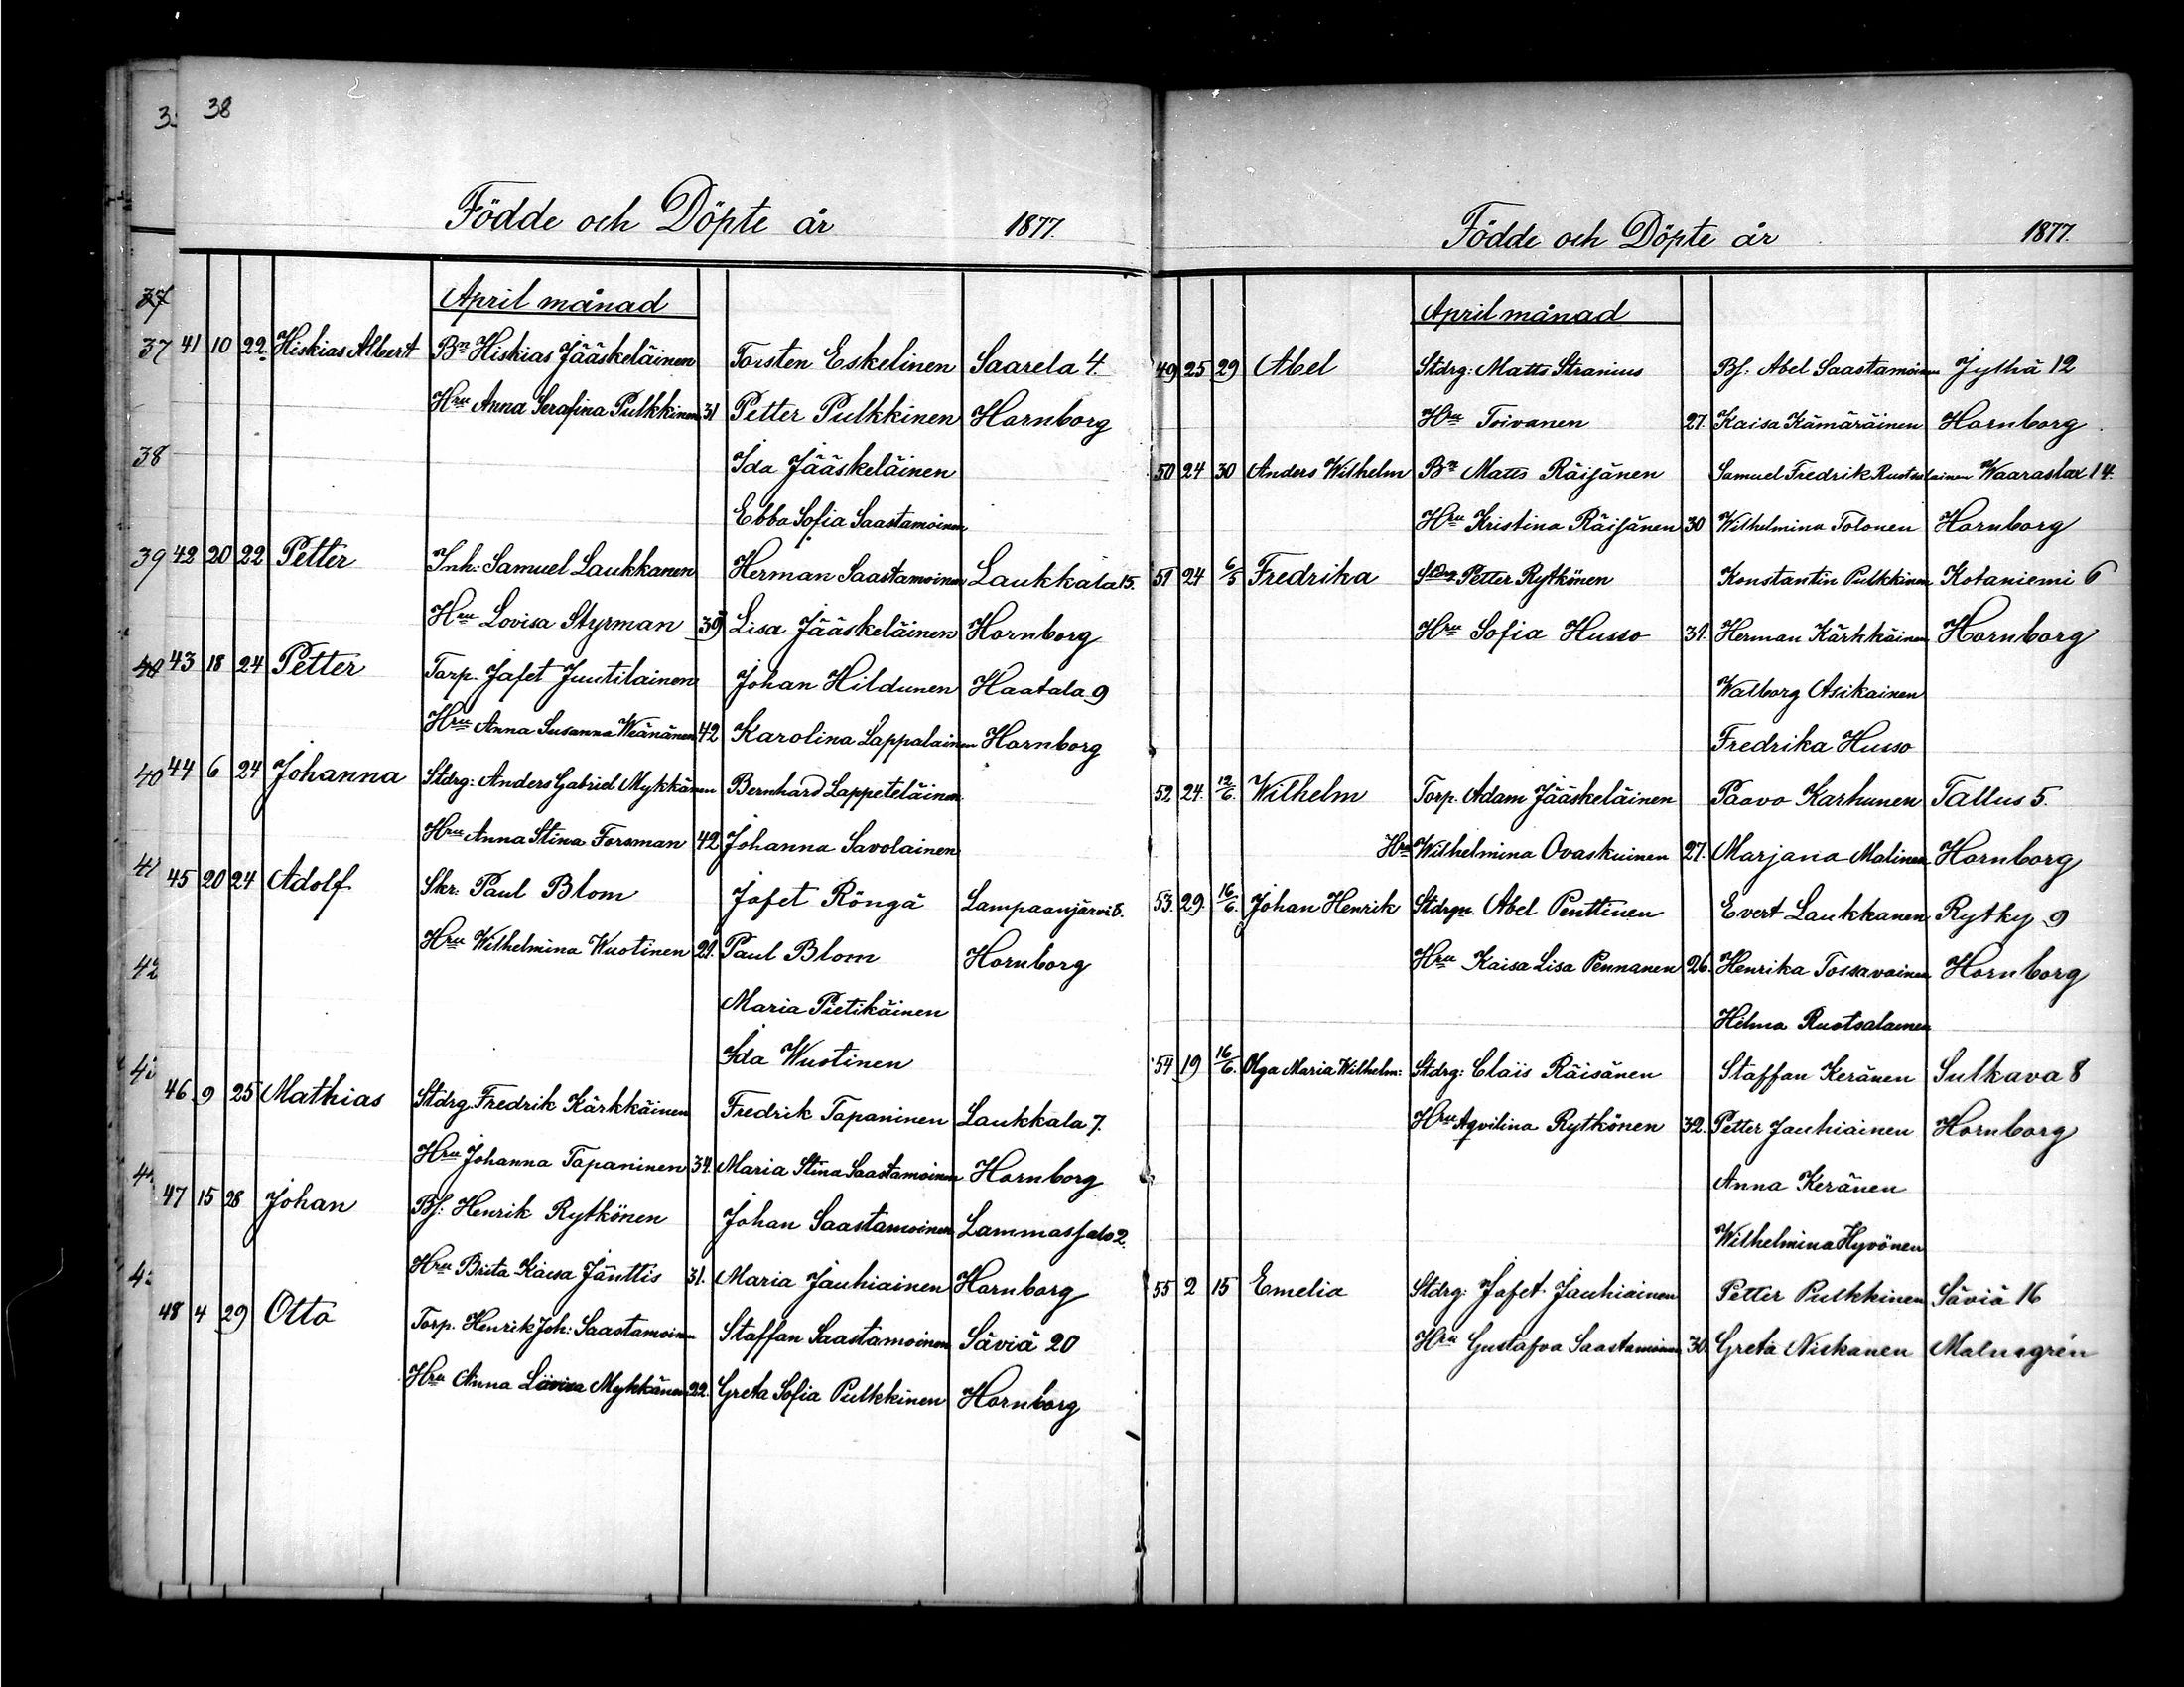 38
Födde och Döpte år 1877.
April månad
41 10 22. Hiskias Albert Bn Hiskias Jääskeläinen Torsten Eskelinen Saarela 4.
Hru Anna Serafina Pulkkinen 31 Petter Pulkkinen Hornborg
Ida Jääskeläinen
Ebba Sofia Saastamoinen
42 20 22 Petter Inh: Samuel Laukkanen Herman Saastamoinen Laukkala 15.
Hru Lovisa Styrman 39 Lisa Jääskeläinen Hornborg
43 18 24 Petter Torp. Jafet Juutilainen Johan Hildunen Haatala 9
Hru Anna Susanna Wänänen 42 Karolina Lappalainen Hornborg
44 6 24 Johanna Stdrg: Anders Gabriel Mykkänen Bernhard Lappeteläinen
Hru Anna Stina Forsman 42 Johanna Savolainen
45 20 24 Adolf Skr: Paul Blom Jafet Röngä Lampaanjärvi 8.
Hru Wilhelmina Wuotinen 29. Paul Blom Hornborg
Maria Pietikäinen
Ida Wuotinen
46 9 25 Mathias Stdrg. Fredrik Kärkkäinen Fredrik Tapaninen Laukkala 7.
Hru Johanna Tapaninen 34. Maria Stina Saastamoinen Hornborg
47 15 28 Johan Bf: Henrik Rytkönen Johan Saastamoinen Lammassalo 2.
Hru Brita Kaisa Jänttis 31. Maria Jauhiainen Hornborg
48 4 29 Otto Torp. Henrik Joh: Saastamoinen Staffan Saastamoinen Säviä 20
Hru Anna Lovisa Mykkänen 22. Greta Sofia Pulkkinen Hornborg
37
37
38
39
40
40
41
42
Födde och Döpte år 1877.
April månad
49 25 29 Abel Stdrg: Matts Stranius Bf. Abel Saastamoinen Jylhä 12
Hru Toivanen 27. Kaisa Kämäräinen Hornborg
50 24 30 Anders Wilhelm Bn Matts Räisänen Samuel Fredrik Ruotsalainen Waaraslax 14.
Hru Kristina Räisänen 30 Wilhelmina Tolonen Hornborg
51 24 6/5 Fredrika Stdrg Petter Rytkönen Konstantin Pulkkinen Kotaniemi 6
Hru Sofia Husso 31. Herman Kärkkäinen Hornborg
Walborg Asikainen
Fredrika Husso
52 24. 12/6. Wilhelm Torp. Adam Jääskeläinen Paavo Karhunen Tallus 5.
Hru Wilhelmina Ovaskainen 27. Marjana Malinen Hornborg
53. 29. 16/6. Johan Henrik Stdrgn. Abel Penttinen Evert Laukkanen Rytky 9
Hru Kaisa Lisa Pennanen 26. Henrika Tossavainen Hornborg
Hilma Ruotsalainen
54 19 16/6. Olga Maria Wilhelm: Stdrg: Claïs Räisänen Staffan Keränen Sulkava 8
Hru Aqvilina Rytkönen 32. Petter Jauhiainen Hornborg
Anna Keränen
Wilhelmina Hyvönen
55 2 15 Emelia Stdrg: Jafet Jauhiainen Petter Pulkkinen Säviä 16
Hru Gustafva Saastamoinen 30. Greta Niskanen Malmgrén